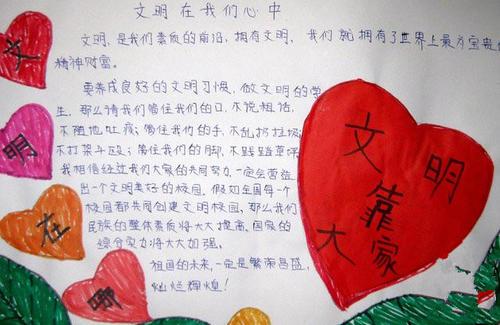 文明在我们心中
文明，是我们素质的前沿，拥有文明， 我们就拥有了世界上最为宝贵的
精神财富。
要养成良好的文明习惯，做文明的学
生，那么请我们管住我们的口，不说粗话，
不随地吐痰；管住我们的手，不乱扔垃圾；
不打架斗殴；管住我们的脚，不践踏草坪。
我相信经过我们大家的共同努力，一定会营造
出一个文明美好的校园，假如全国每一个
校园都共同创建文明校园，那么我们
民族的整体素质将大大提高，国家的
综合实力将大大加强。
祖国的未来，一定是繁荣昌盛，
灿烂辉煌！
文明
靠
大家
明
在
哪